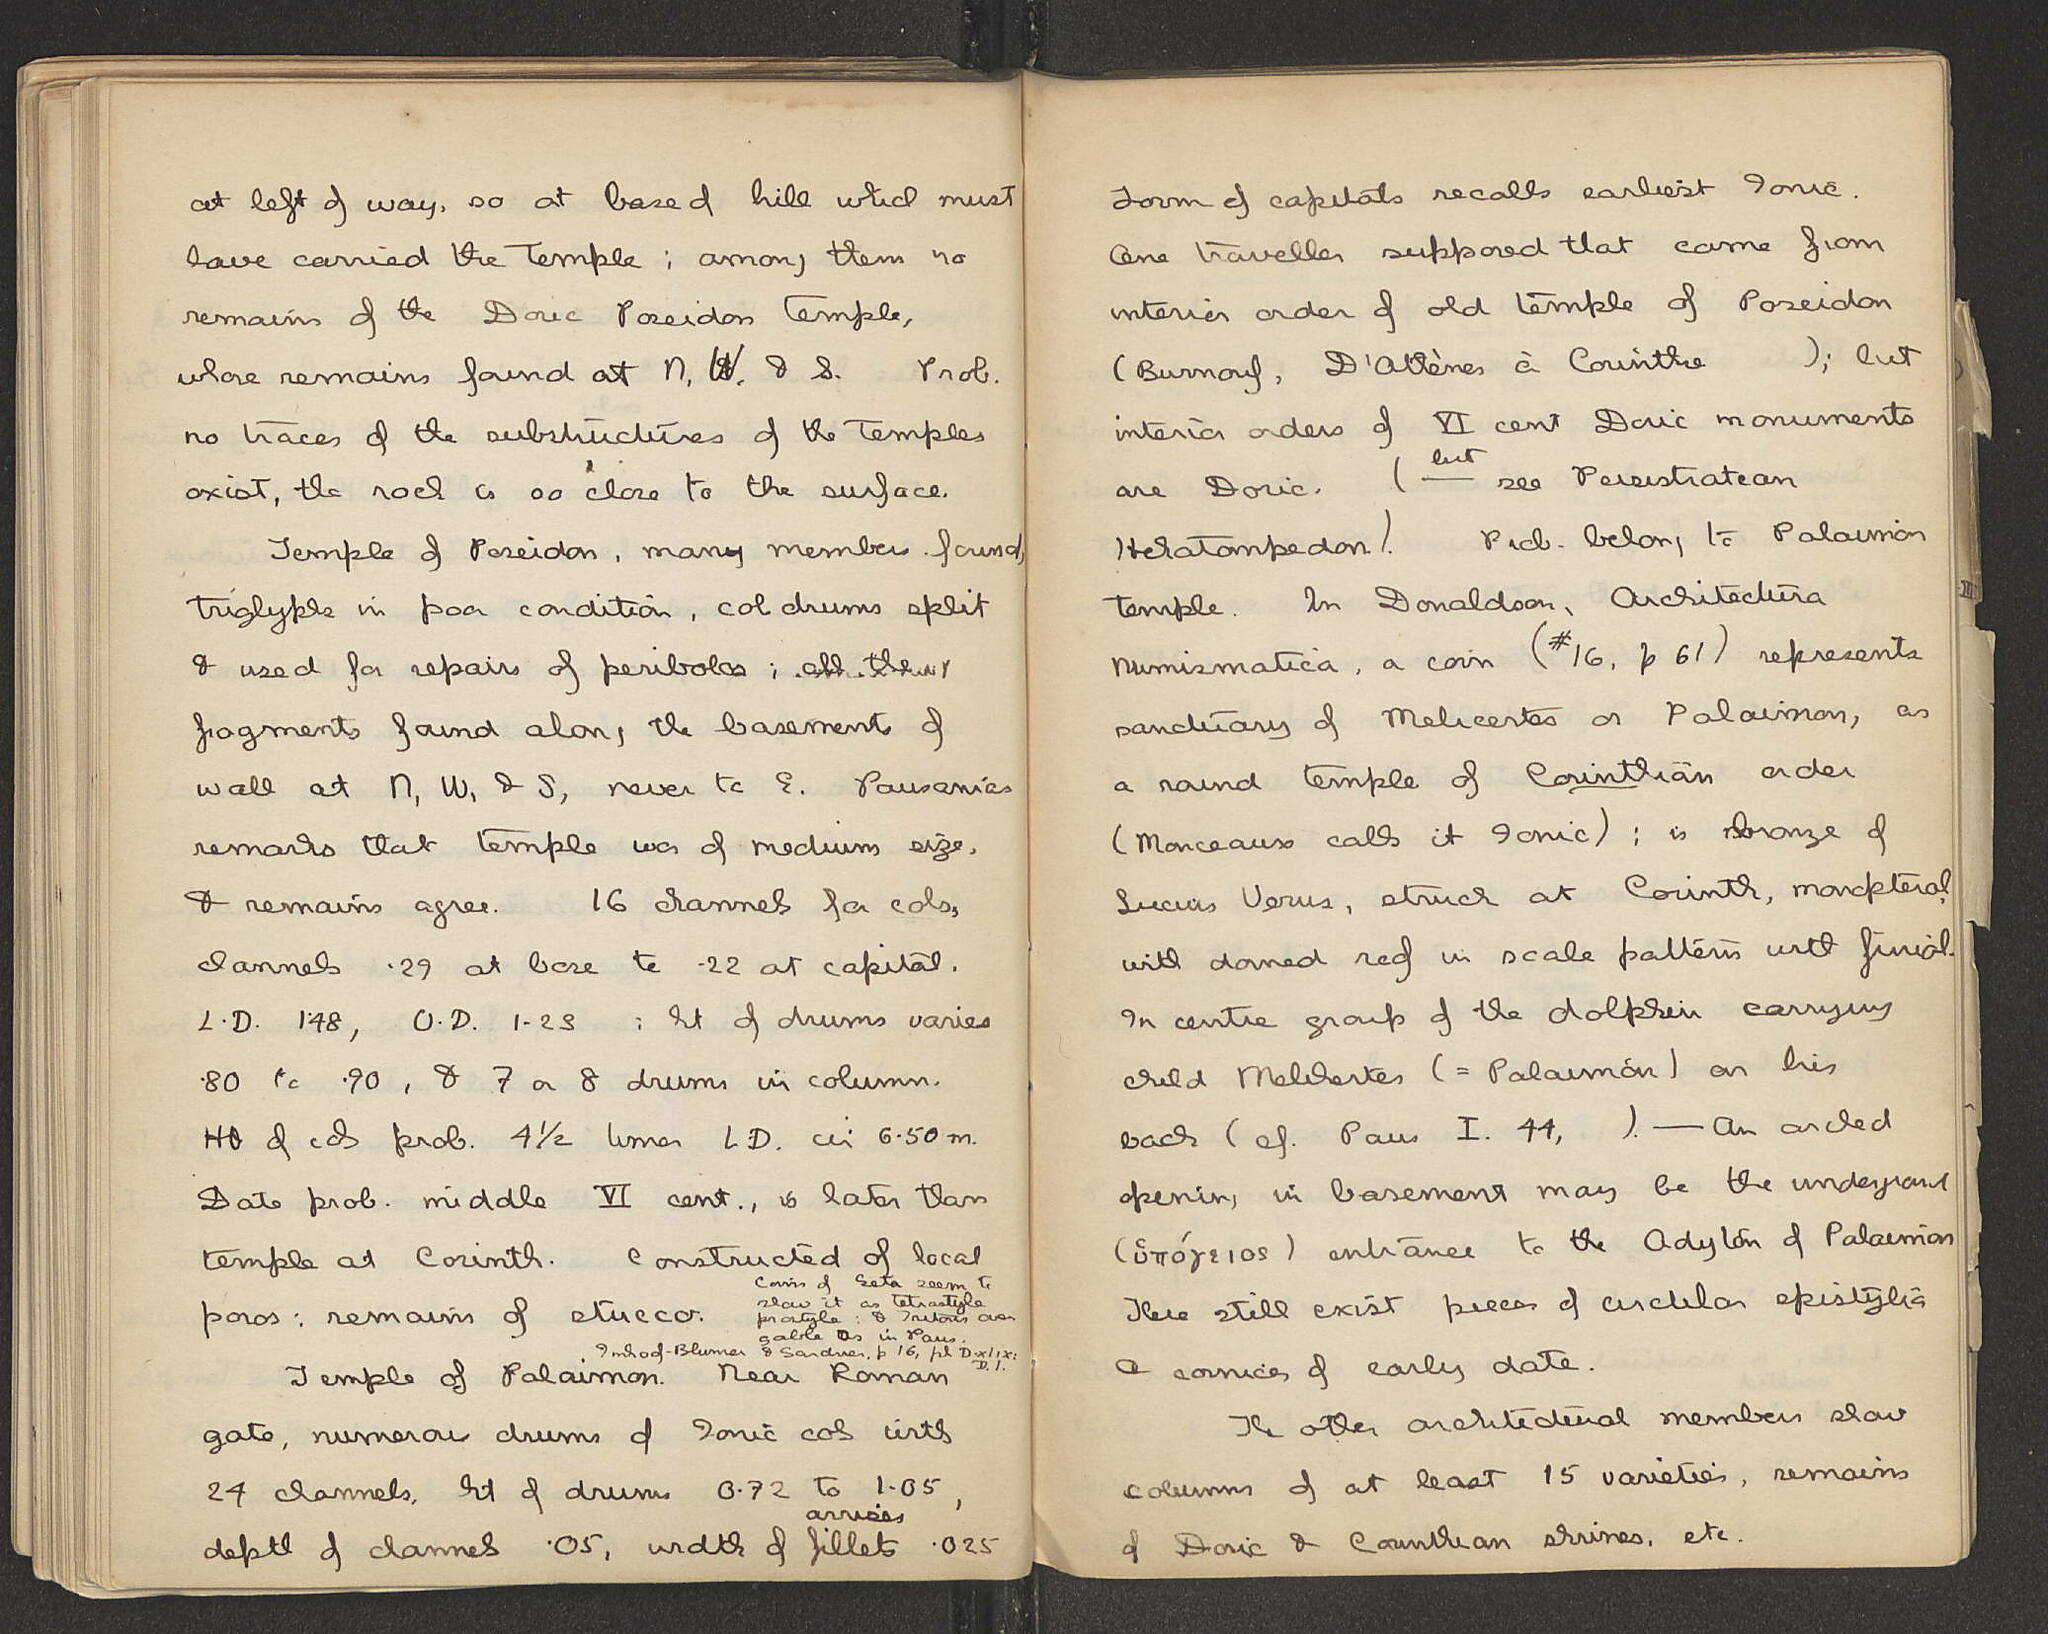 at left of way, so at base of hill which must
have carried the temple; among them no
remains of the Doric Poseidon temple,
whose remains found at N, W, & S. Prob.
no traces of the substructures of the temples
exist, the rock is so close to the surface.
Temple of Poseidon, many members found,
triglyphs in poor condition, col drums split
& used for repairs of peribolos; all their
fragments found along the basements of
wall at N, W, & S, never to E. Pausanias
remarks that temple was of medium size,
& remains agree. 16 channels for cols,
channels .29 at base to .22 at capital.
L.D. 1.48, U.D. 1.23 ; ht of drums varies
.80 to .90, & 7 or 8 drums in column.
Ht of cols prob. 4 1/2 times L.D. or 6.50 m.
Date prob. middle VI cent., is later than
temple at Corinth. Constructed of local
poros; remains of stucco.
Coins of Geta seem to
show it as tetrastyle
prostyle: & Tritons over
gable as in Paus.
Imhoof-Blumer & Gardner, p 16, pl D. xlix:
D. l.
Temple of Palaimon. Near Roman
gate, numerous drums of Ionic cols with
24 channels, ht of drums 0.72 to 1.05,
arrises
depth of channels .05, width of fillets .025
Form of capitals recalls earliest Ionic.
One traveller supposed that came from
interior order of old temple of Poseidon
(Burnouf, D'Athènes à Corinthe ); but
interior orders of VI cent Doric monuments
are Doric. (but see Peisistratean
Hekatompedon). Prob. belong to Palaimon
temple. In Donaldson, Architectura
Numismatica, a coin (#16, p 61) represents
sanctuary of Melicertes or Palaimon, as
a round temple of Corinthian order
(Monceaux calls it Ionic); is bronze of
Lucius Verus, struck at Corinth, monopteral,
with domed roof in scale pattern with finial.
In centre group of the dolphin carrying
child Melikertes (= Palaimon) on his
back (cf. Paus I. 44, ). — An arched
opening in basement may be the underground
(ὑπόγειος) entrance to the Adyton of Palaimon
There still exist pieces of circular epistylia
& cornices of early date.
The other architectural members show
columns of at least 15 varieties, remains
of Doric & Corinthian shrines, etc.